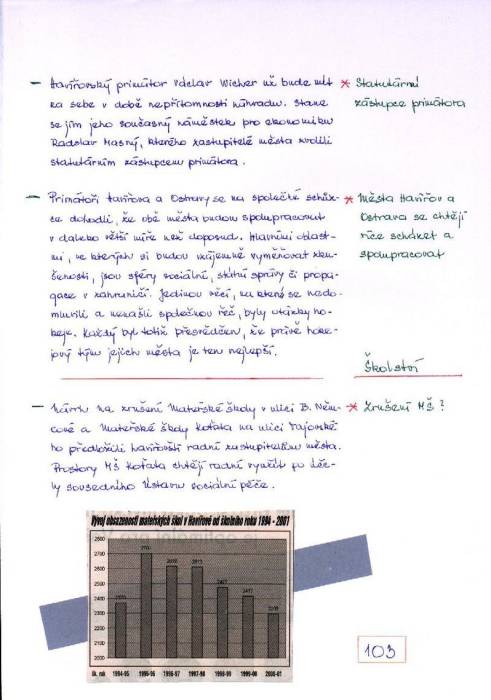 — Havířovský primátor Václav Wicher už bude mít
za sebe v době nepřítomnosti náhradu. Stane
se jím jeho současný náměstek pro ekonomiku
Radslav Masný, kterého zastupitelé města zvolili
statutárním zástupcem primátora.
* Statutární
zástupce primátora
— Primátoři Havířova a Ostravy se na společné schůz-
ce dohodli, že obě města budou spolupracovat
v daleko větší míře než doposud. Hlavními oblast-
mi, ve kterých si budou vzájemně vyměňovat zku-
šenosti, jsou sféry sociální, státní správy či propa-
gace v zahraničí. Jedinou věcí, na které se nedo-
mluvili a nenašli společnou řeč, byly otázky ho-
keje. Každý byl totiž přesvědčen, že právě hoke-
jový tým jejich města je ten nejlepší.
* Města Havířov a
Ostrava se chtějí
více scházet a
spolupracovat
Školství
— Návrh na zrušení Mateřské školy v ulici B. Něm-
cové a Mateřské školy Koťata na ulici Majovské-
ho předložili havířovští radní zastupitelům města.
Prostory MŠ Koťata chtějí radní využít po úče-
ly sousedního Ústavu sociální péče.
* Zrušení MŠ?
Vývoj obsazenosti mateřských škol v Havířově od školního roku 1994 - 2001
2800
2700
2600
2500
2400
2300
2200
2100
2000
šk. rok 1994-95 1995-96 1996-97 1997-98 1998-99 1999-00 2000-01
103